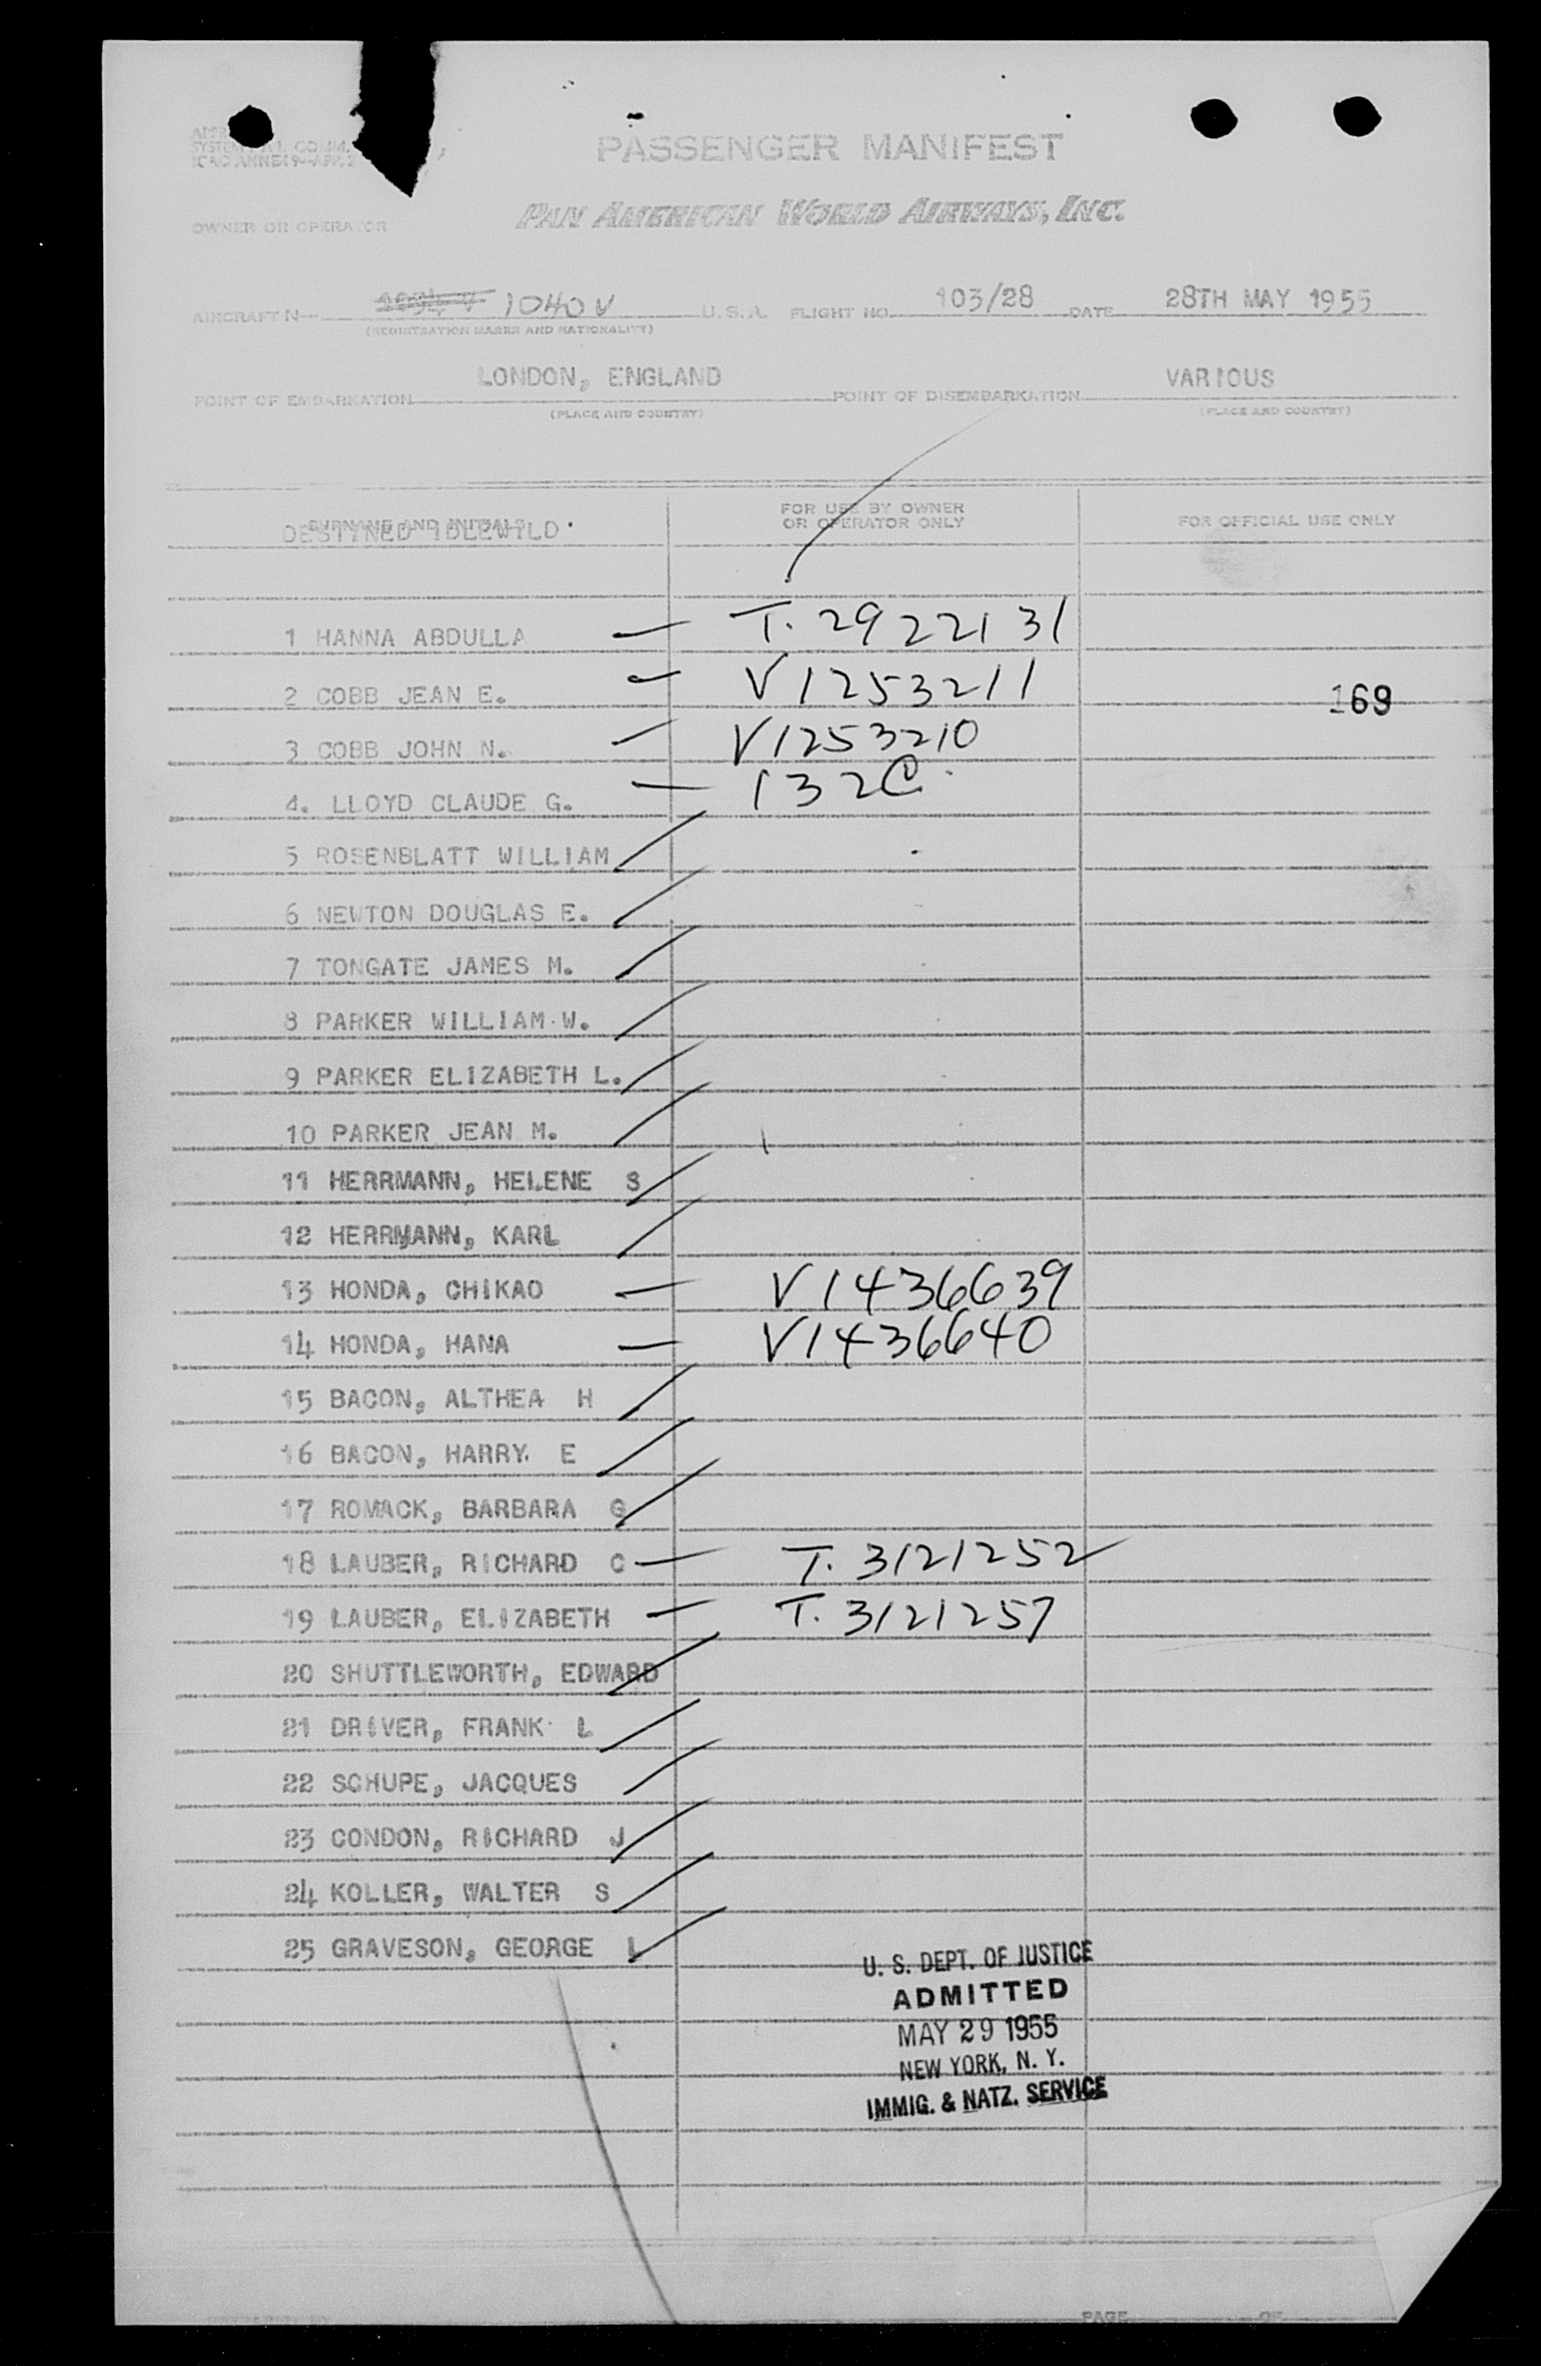 PASSENGER MANIFEST
PAN AMERICAN WORLD AIRWAYS, INC.
OWNER OR OPERATOR
AIRCRAFT N 1040V U.S.A. FLIGHT NO. 103/28 DATE 28TH MAY 1955
(REGISTRATION MARKS AND NATIONALITY)
LONDON, ENGLAND VARIOUS
POINT OF EMBARKATION POINT OF DISEMBARKATION
(PLACE AND COUNTRY) (PLACE AND COUNTRY)
SURNAME AND INITIALS FOR USE BY OWNER OR OPERATOR ONLY FOR OFFICIAL USE ONLY
DESTINED IDLEWILD.
1 HANNA ABDULLA — T. 2922131
2 COBB JEAN E. — V1253211 169
3 COBB JOHN N. — V1253210
4. LLOYD CLAUDE G. — 132C
5 ROSENBLATT WILLIAM
6 NEWTON DOUGLAS E.
7 TONGATE JAMES M.
8 PARKER WILLIAM W.
9 PARKER ELIZABETH L.
10 PARKER JEAN M.
11 HERRMANN, HELENE S
12 HERRMANN, KARL
13 HONDA, CHIKAO — V1436639
14 HONDA, HANA — V1436640
15 BACON, ALTHEA H
16 BACON, HARRY E
17 ROMACK, BARBARA G
18 LAUBER, RICHARD C — T. 3121252
19 LAUBER, ELIZABETH — T. 3121257
20 SHUTTLEWORTH, EDWARD
21 DRIVER, FRANK L
22 SCHUPE, JACQUES
23 CONDON, RICHARD J
24 KOLLER, WALTER S
25 GRAVESON, GEORGE L
U. S. DEPT. OF JUSTICE
ADMITTED
MAY 29 1955
NEW YORK, N. Y.
IMMIG. & NATZ. SERVICE
PAGE OF